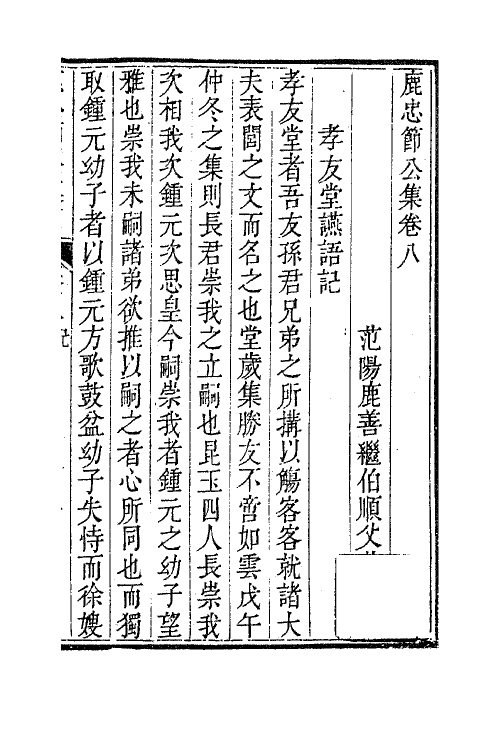 鹿忠節公集卷八
范陽鹿善繼伯順父
孝友堂讌語記
孝友堂者吾友孫君兄弟之所搆以觴客客就諸大
夫表閭之文而名之也堂歲集勝友不啻如雲戊午
仲冬之集則長君崇我之立嗣也昆玉四人長崇我
次相我次鍾元次思皇今嗣崇我者鍾元之幼子望
雅也崇我未嗣諸弟欲推以嗣之者心所同也而獨
取鍾元幼子者以鍾元方歌鼓盆幼子失恃而徐嫂